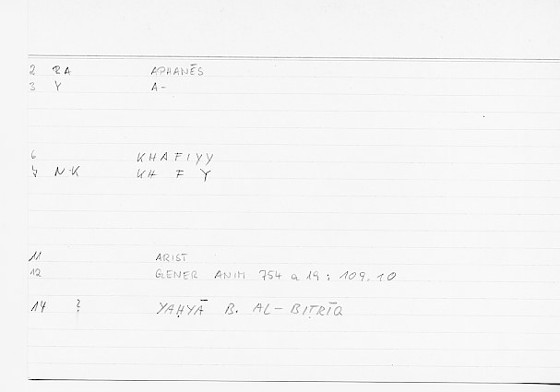 2 RA APHANĒS
3 Y A-
6 KHAFIYY
7 N-K KH F Y
11 ARIST
12 GENER ANIM 754 a 19 : 109.10
14 ? YAḤYĀ B. AL-BIṬRĪQ